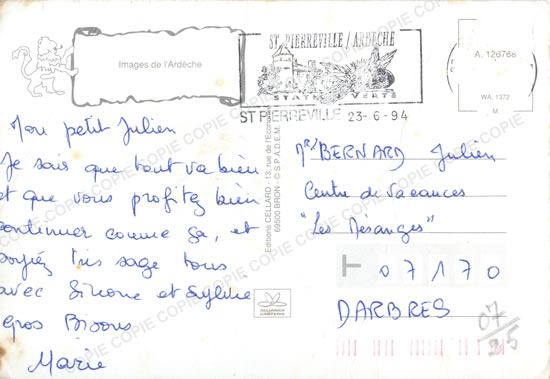 Images de l'Ardèche
ST PIERREVILLE / ARDECHE
STATION VERTE
ST PIERREVILLE 23-6-94
A. 126766
WA. 1372
M
Mon petit Julien
Je sais que tout va bien
et que vous profitez bien
continuer comme ça, et
soyez très sage tous
avec Simone et Sylvie
Gros Bisous
Marie
Editions CELLARD - 13, rue de l'Econo
69500 BRON - © S.P.A.D.E.M.
Mr/ BERNARD Julien
Centre de vacances
"Les Mésanges"
07170
DARBRES
07/95
COPIE COPIE COPIE COPIE